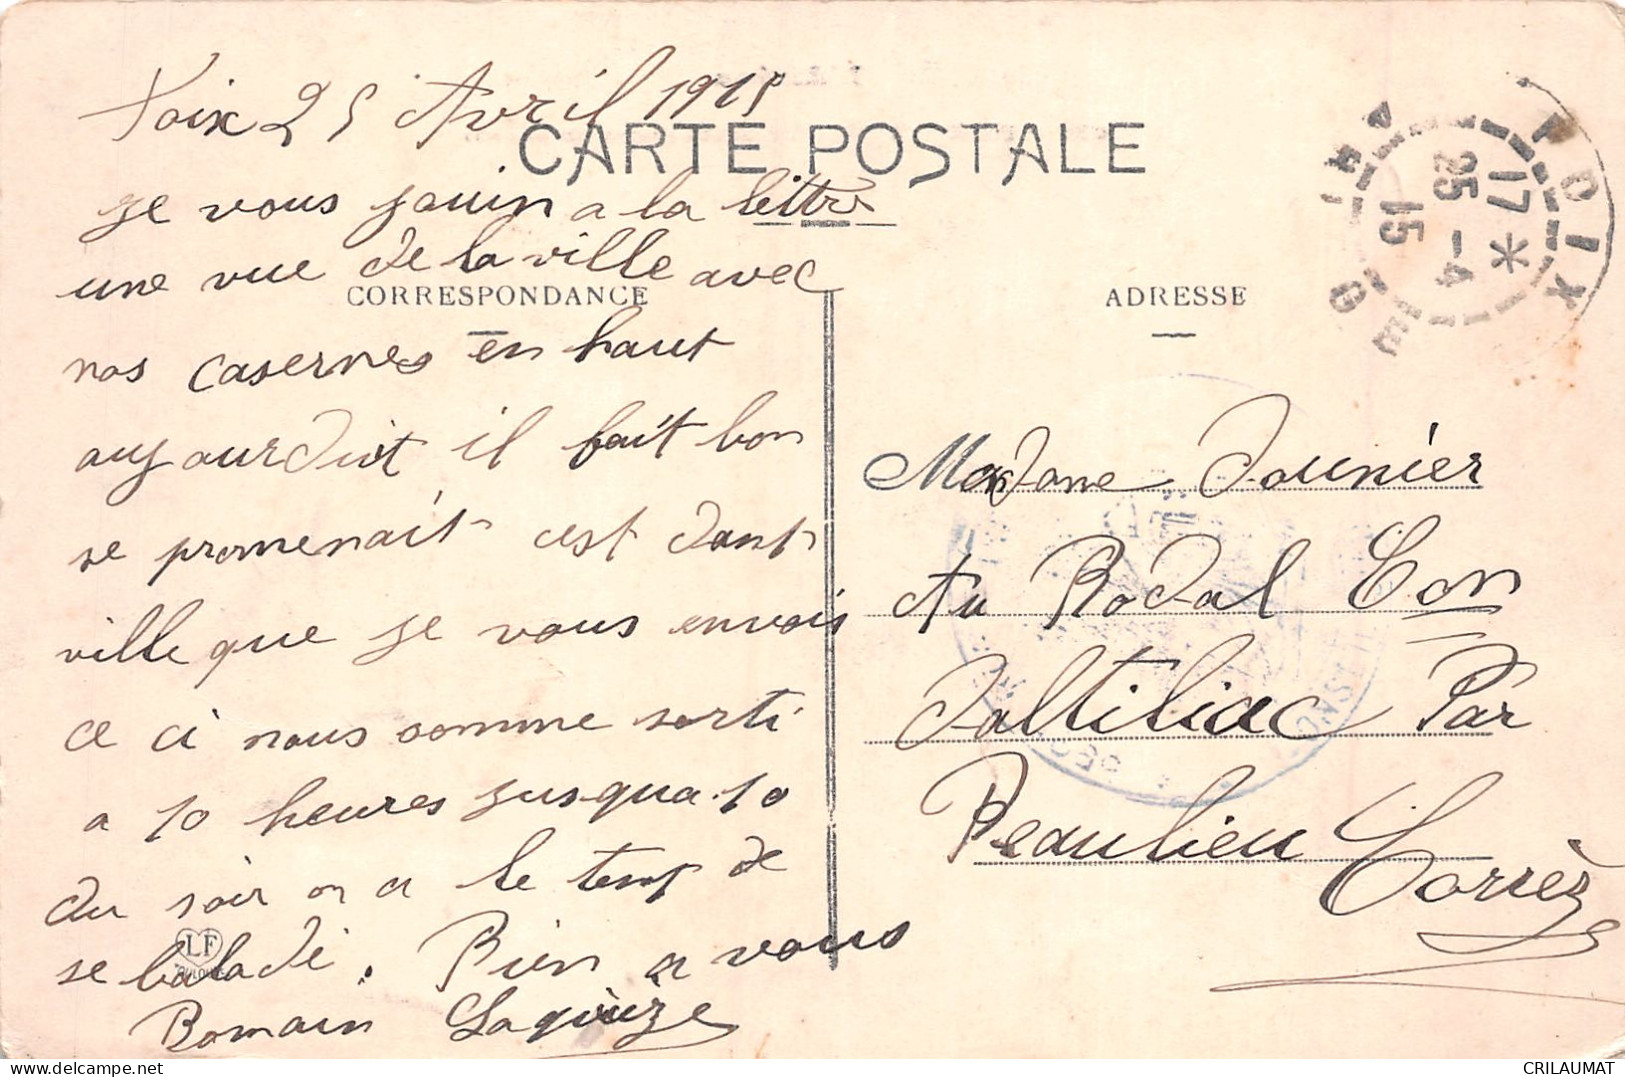 Foix 25 Avril 1915
CARTE POSTALE
je vous jouin a la lettre
une vue de la ville avec
CORRESPONDANCE
nos casernes en haut
aujourduit il fait bon
se promenait cest dant
ville que je vous envois
ce ci nous somme sorti
a 10 heures jusqua 10
du soir on a le temp de
se baladé. Bien a vous
Romain
LF
TOULOUSE
ADRESSE
FOIX
17 *
25 -4
15
ARIÈGE
Madame
Au Rodal Con
Daltiliac Par
Beaulieu Corrèz
CRILAUMAT